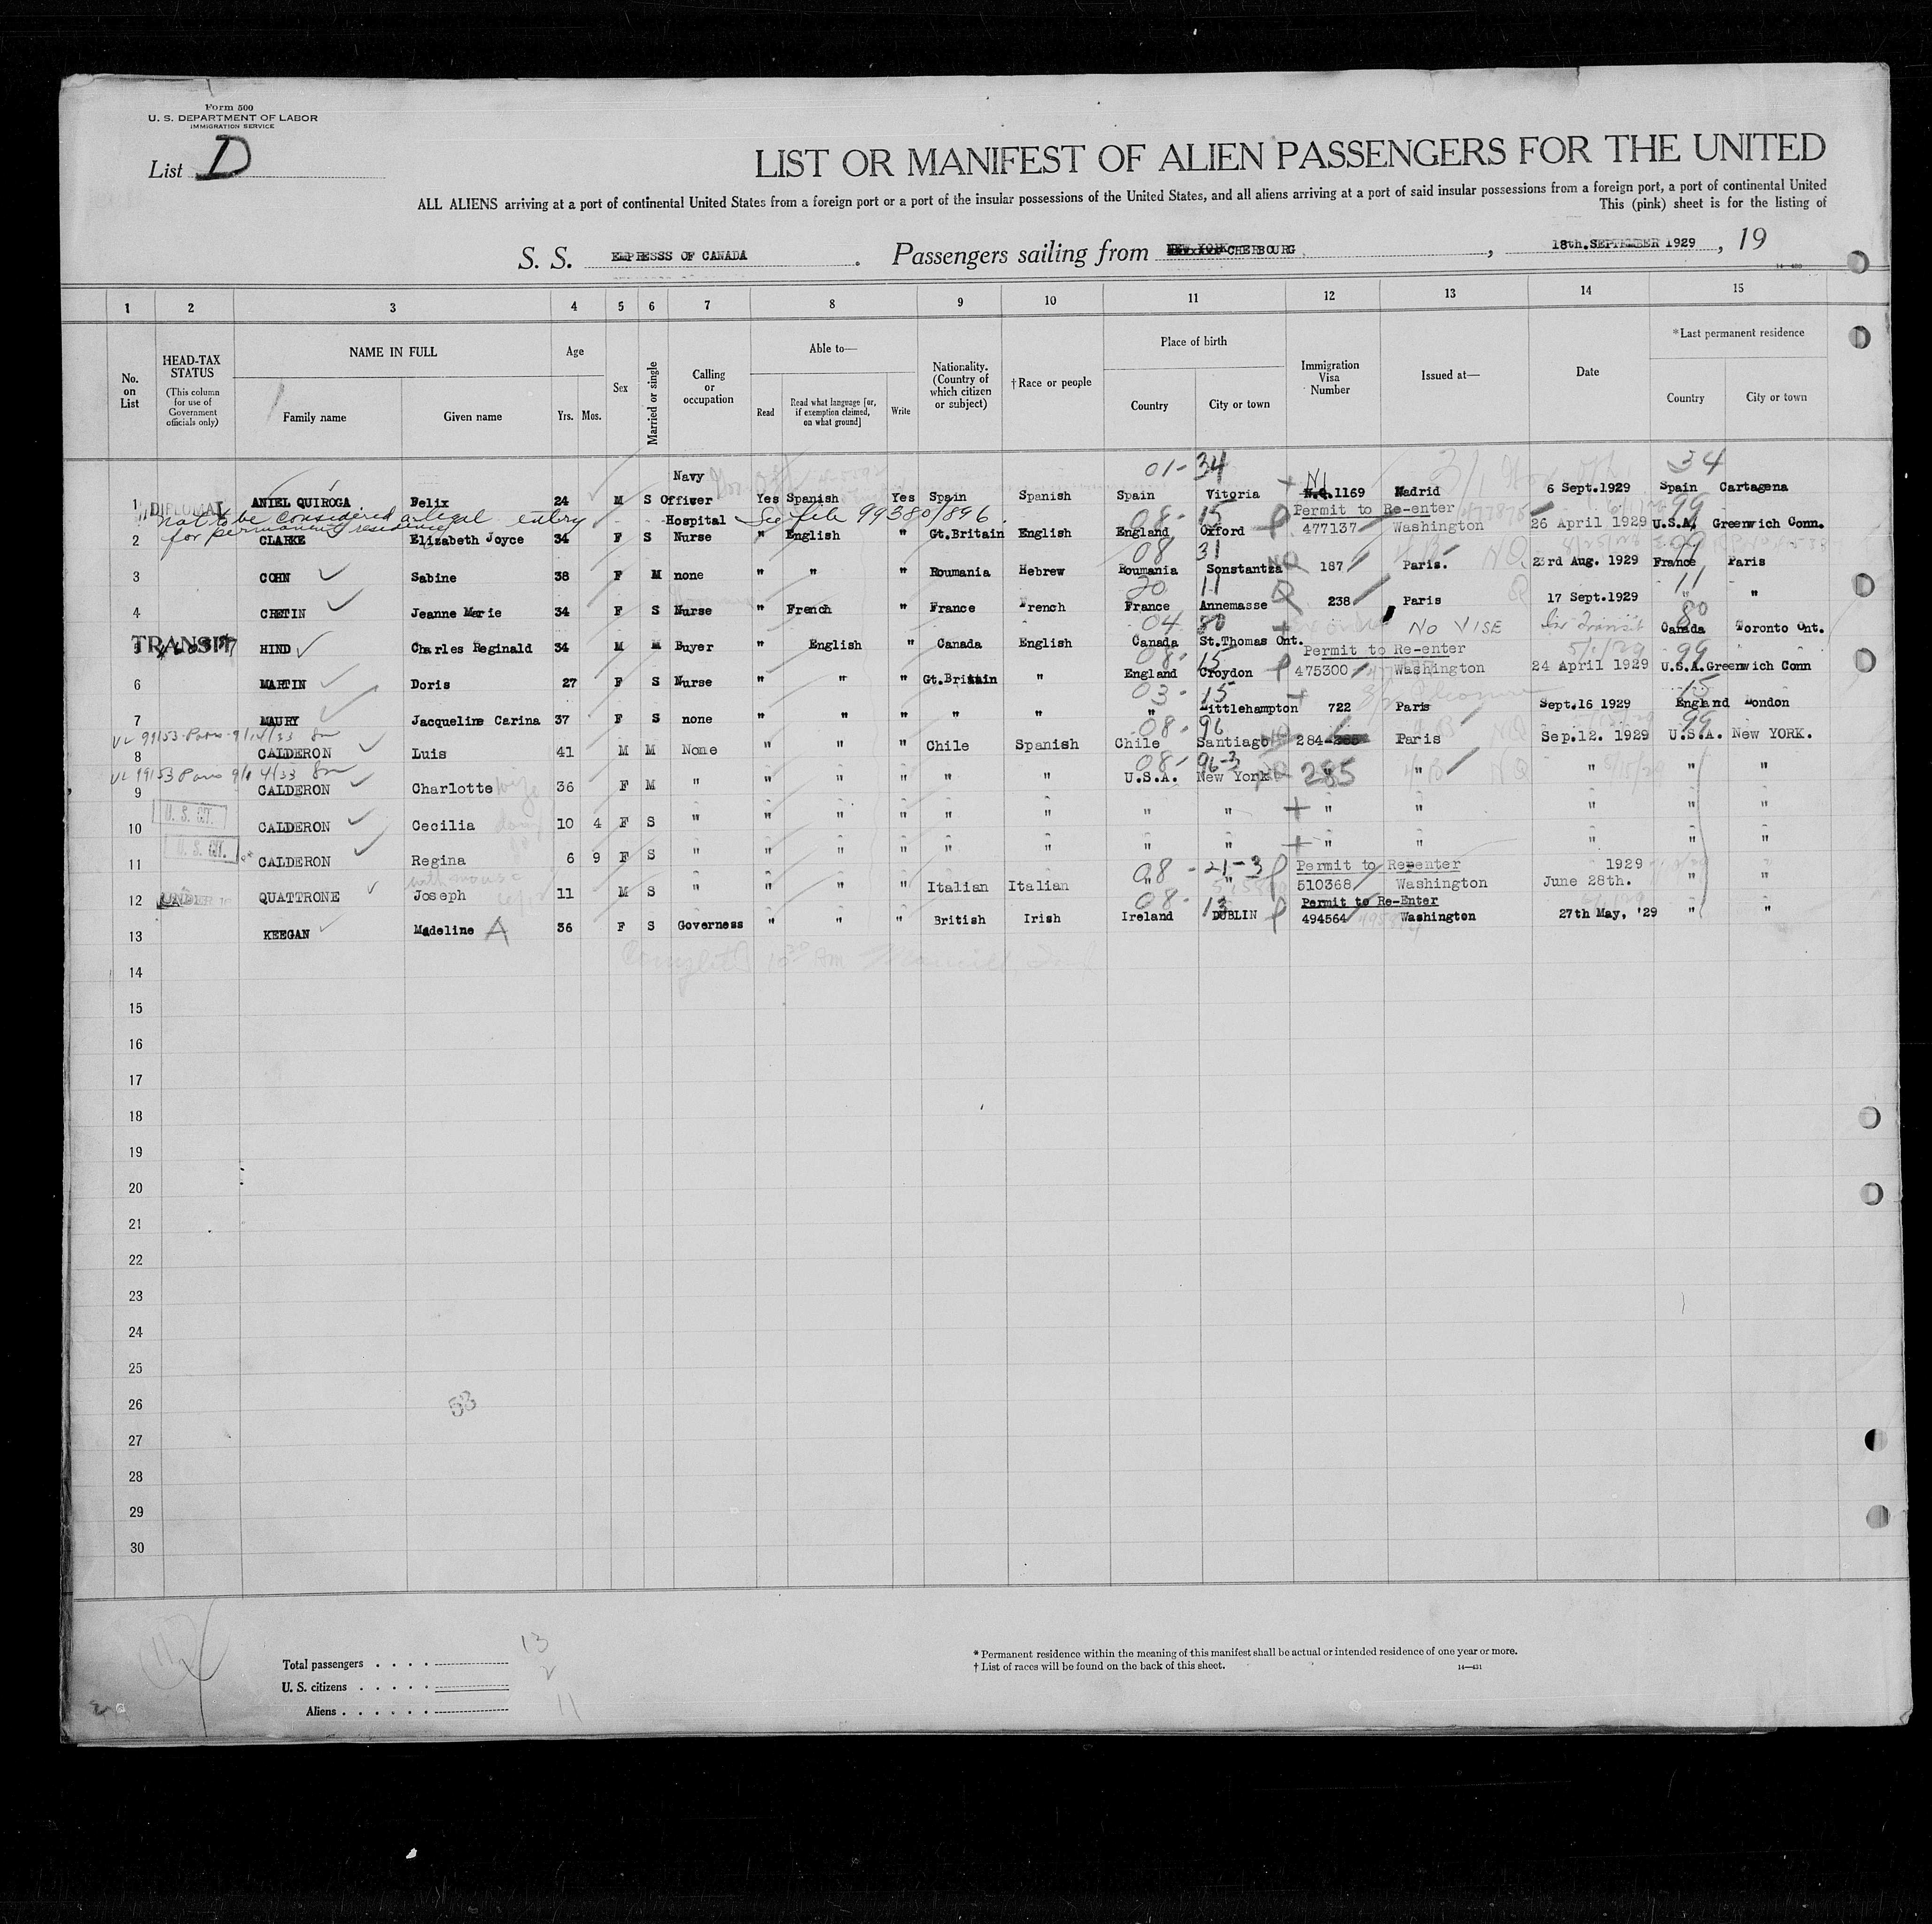 Form 500
U. S. DEPARTMENT OF LABOR
IMMIGRATION SERVICE
List D
LIST OR MANIFEST OF ALIEN PASSENGERS FOR THE UNITED
ALL ALIENS arriving at a port of continental United States from a foreign port or a port of the insular possessions of the United States, and all aliens arriving at a port of said insular possessions from a foreign port, a port of continental United
This (pink) sheet is for the listing of
S. S. EMPRESSS OF CANADA. Passengers sailing from CHERBOURG, 18th.SEPTEMBER 1929, 19
14—430
1 2 3 4 5 6 7 8 9 10 11 12 13 14 15
No. on List
HEAD-TAX STATUS (This column for use of Government officials only)
NAME IN FULL
Family name Given name
Age
Yrs. Mos.
Sex
Married or single
Calling or occupation
Able to—
Read Read what language [or, if exemption claimed, on what ground] Write
Nationality. (Country of which citizen or subject)
†Race or people
Place of birth
Country City or town
Immigration Visa Number
Issued at—
Date
*Last permanent residence
Country City or town
01-34 34
1 DIPLOMAT ANIEL QUIROGA Felix 24 M S Navy Officer Yes Spanish Yes Spain Spanish Spain Vitoria 1169 Madrid 6 Sept.1929 Spain Cartagena
not to be considered a legal entry for permanent residence See file 99380/896
08-15 99
2 CLARKE Elizabeth Joyce 34 F S Hospital Nurse " English " Gt.Britain English England Oxford Permit to Re-enter 477137 Washington 26 April 1929 U.S.A. Greenwich Conn.
08 31
3 COHN Sabine 38 F M none " " " Roumania Hebrew Roumania Sonstantza NQ 187 Paris. 23rd Aug. 1929 France Paris
20 11 11
4 CRETIN Jeanne Marie 34 F S Nurse " French " France French France Annemasse Q 238 Paris 17 Sept.1929 " "
04 80 80
TRANSIT HIND Charles Reginald 34 M M Buyer " English " Canada English Canada St.Thomas Ont. NO VISE In Transit Canada Toronto Ont.
08-15 5/1/29 99
6 MARTIN Doris 27 F S Nurse " " " Gt.Britain " England Croydon Permit to Re-enter 475300 Washington 24 April 1929 U.S.A. Greenwich Conn
03-15 15
7 MAURY Jacqueline Carina 37 F S none " " " " " " Littlehampton 722 Paris Sept.16 1929 England London
08-96 99
8 CALDERON Luis 41 M M None " " " Chile Spanish Chile Santiago NQ 284 Paris Sep.12. 1929 U.S.A. New YORK.
08-96-3
9 CALDERON Charlotte wife 36 F M " " " " " " U.S.A. New York 285 " " " "
10 U. S. CIT. CALDERON Cecilia 10 4 F S " " " " " " " " + " " " " "
11 U. S. CIT. CALDERON Regina 6 9 F S " " " " " " " " + " " " " "
08-21-3
12 UNDER 16 QUATTRONE Joseph 11 M S " " " " Italian Italian " " Permit to Reenter 510368 Washington June 28th. 1929 " "
08-13
13 KEEGAN Madeline A 36 F S Governess " " " British Irish Ireland DUBLIN Permit to Re-Enter 494564 Washington 27th May, '29 " "
14
15
16
17
18
19
20
21
22
23
24
25
26 53
27
28
29
30
Total passengers 13
U. S. citizens 2
Aliens 11
* Permanent residence within the meaning of this manifest shall be actual or intended residence of one year or more.
† List of races will be found on the back of this sheet.
14—431